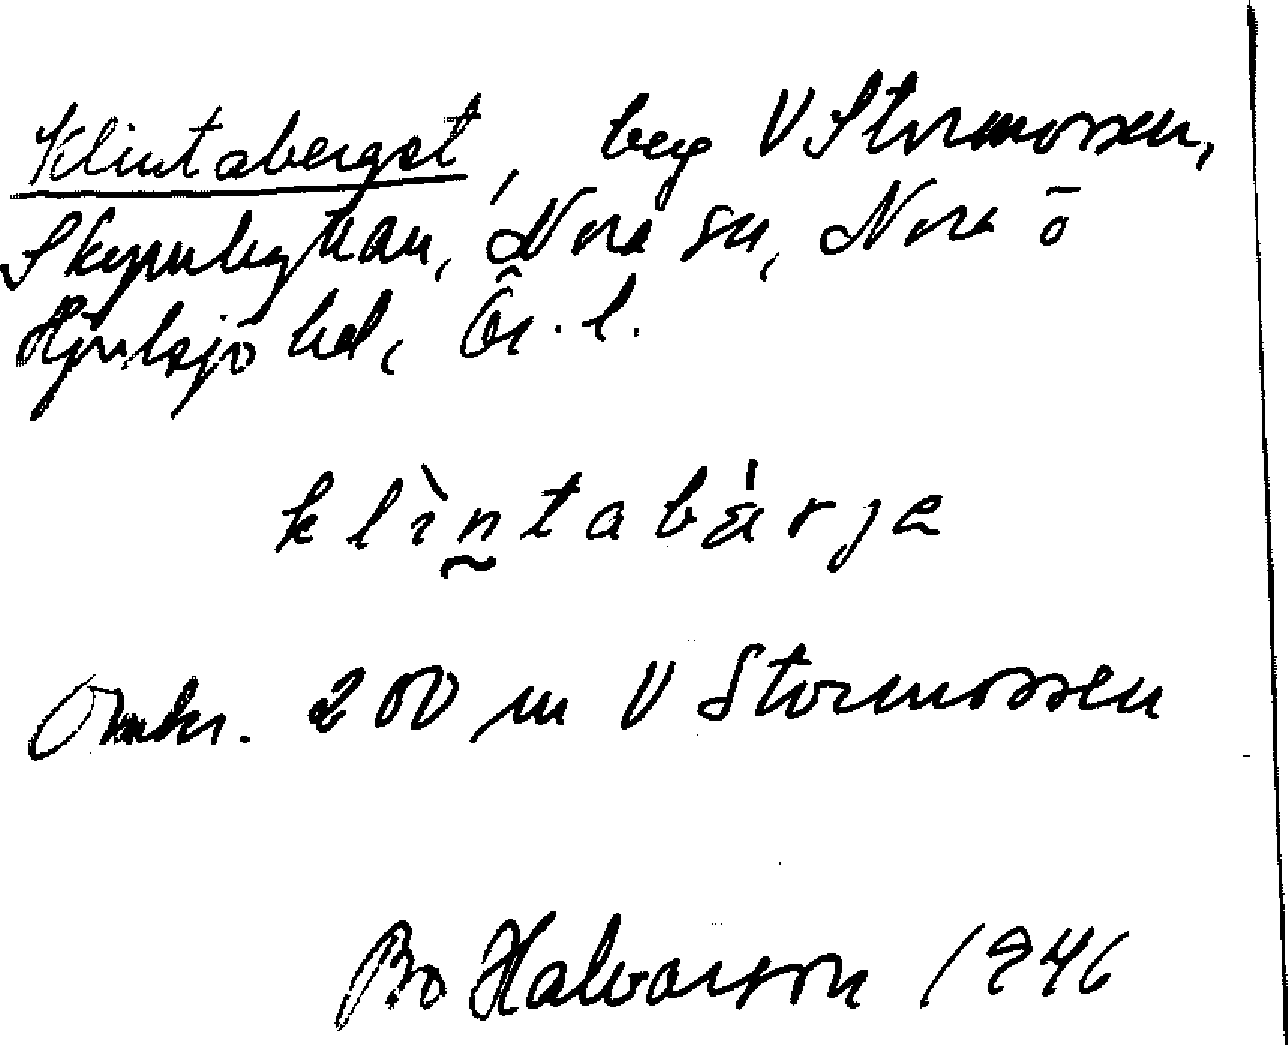 Klintaberget, berg V Stormossen,
Nora sn, Nora o
Hjulsjö bd, Ör. l.
klìntabárje
Omkr. 200 m V Stormossen
Bo Halvarson 1946